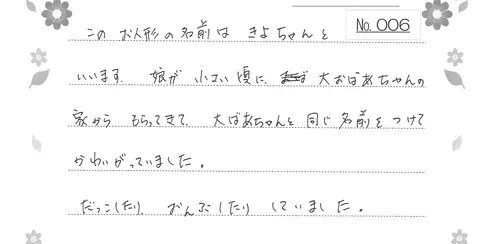 No. 006
このお人形の名前は きよちゃんと
いいます。 娘が 小さい頃に、大おばあちゃんの
家から もらってきて、 大ばあちゃんと 同じ 名前を つけて
かわいがっていました。
だっこしたり、 おんぶしたり していました。